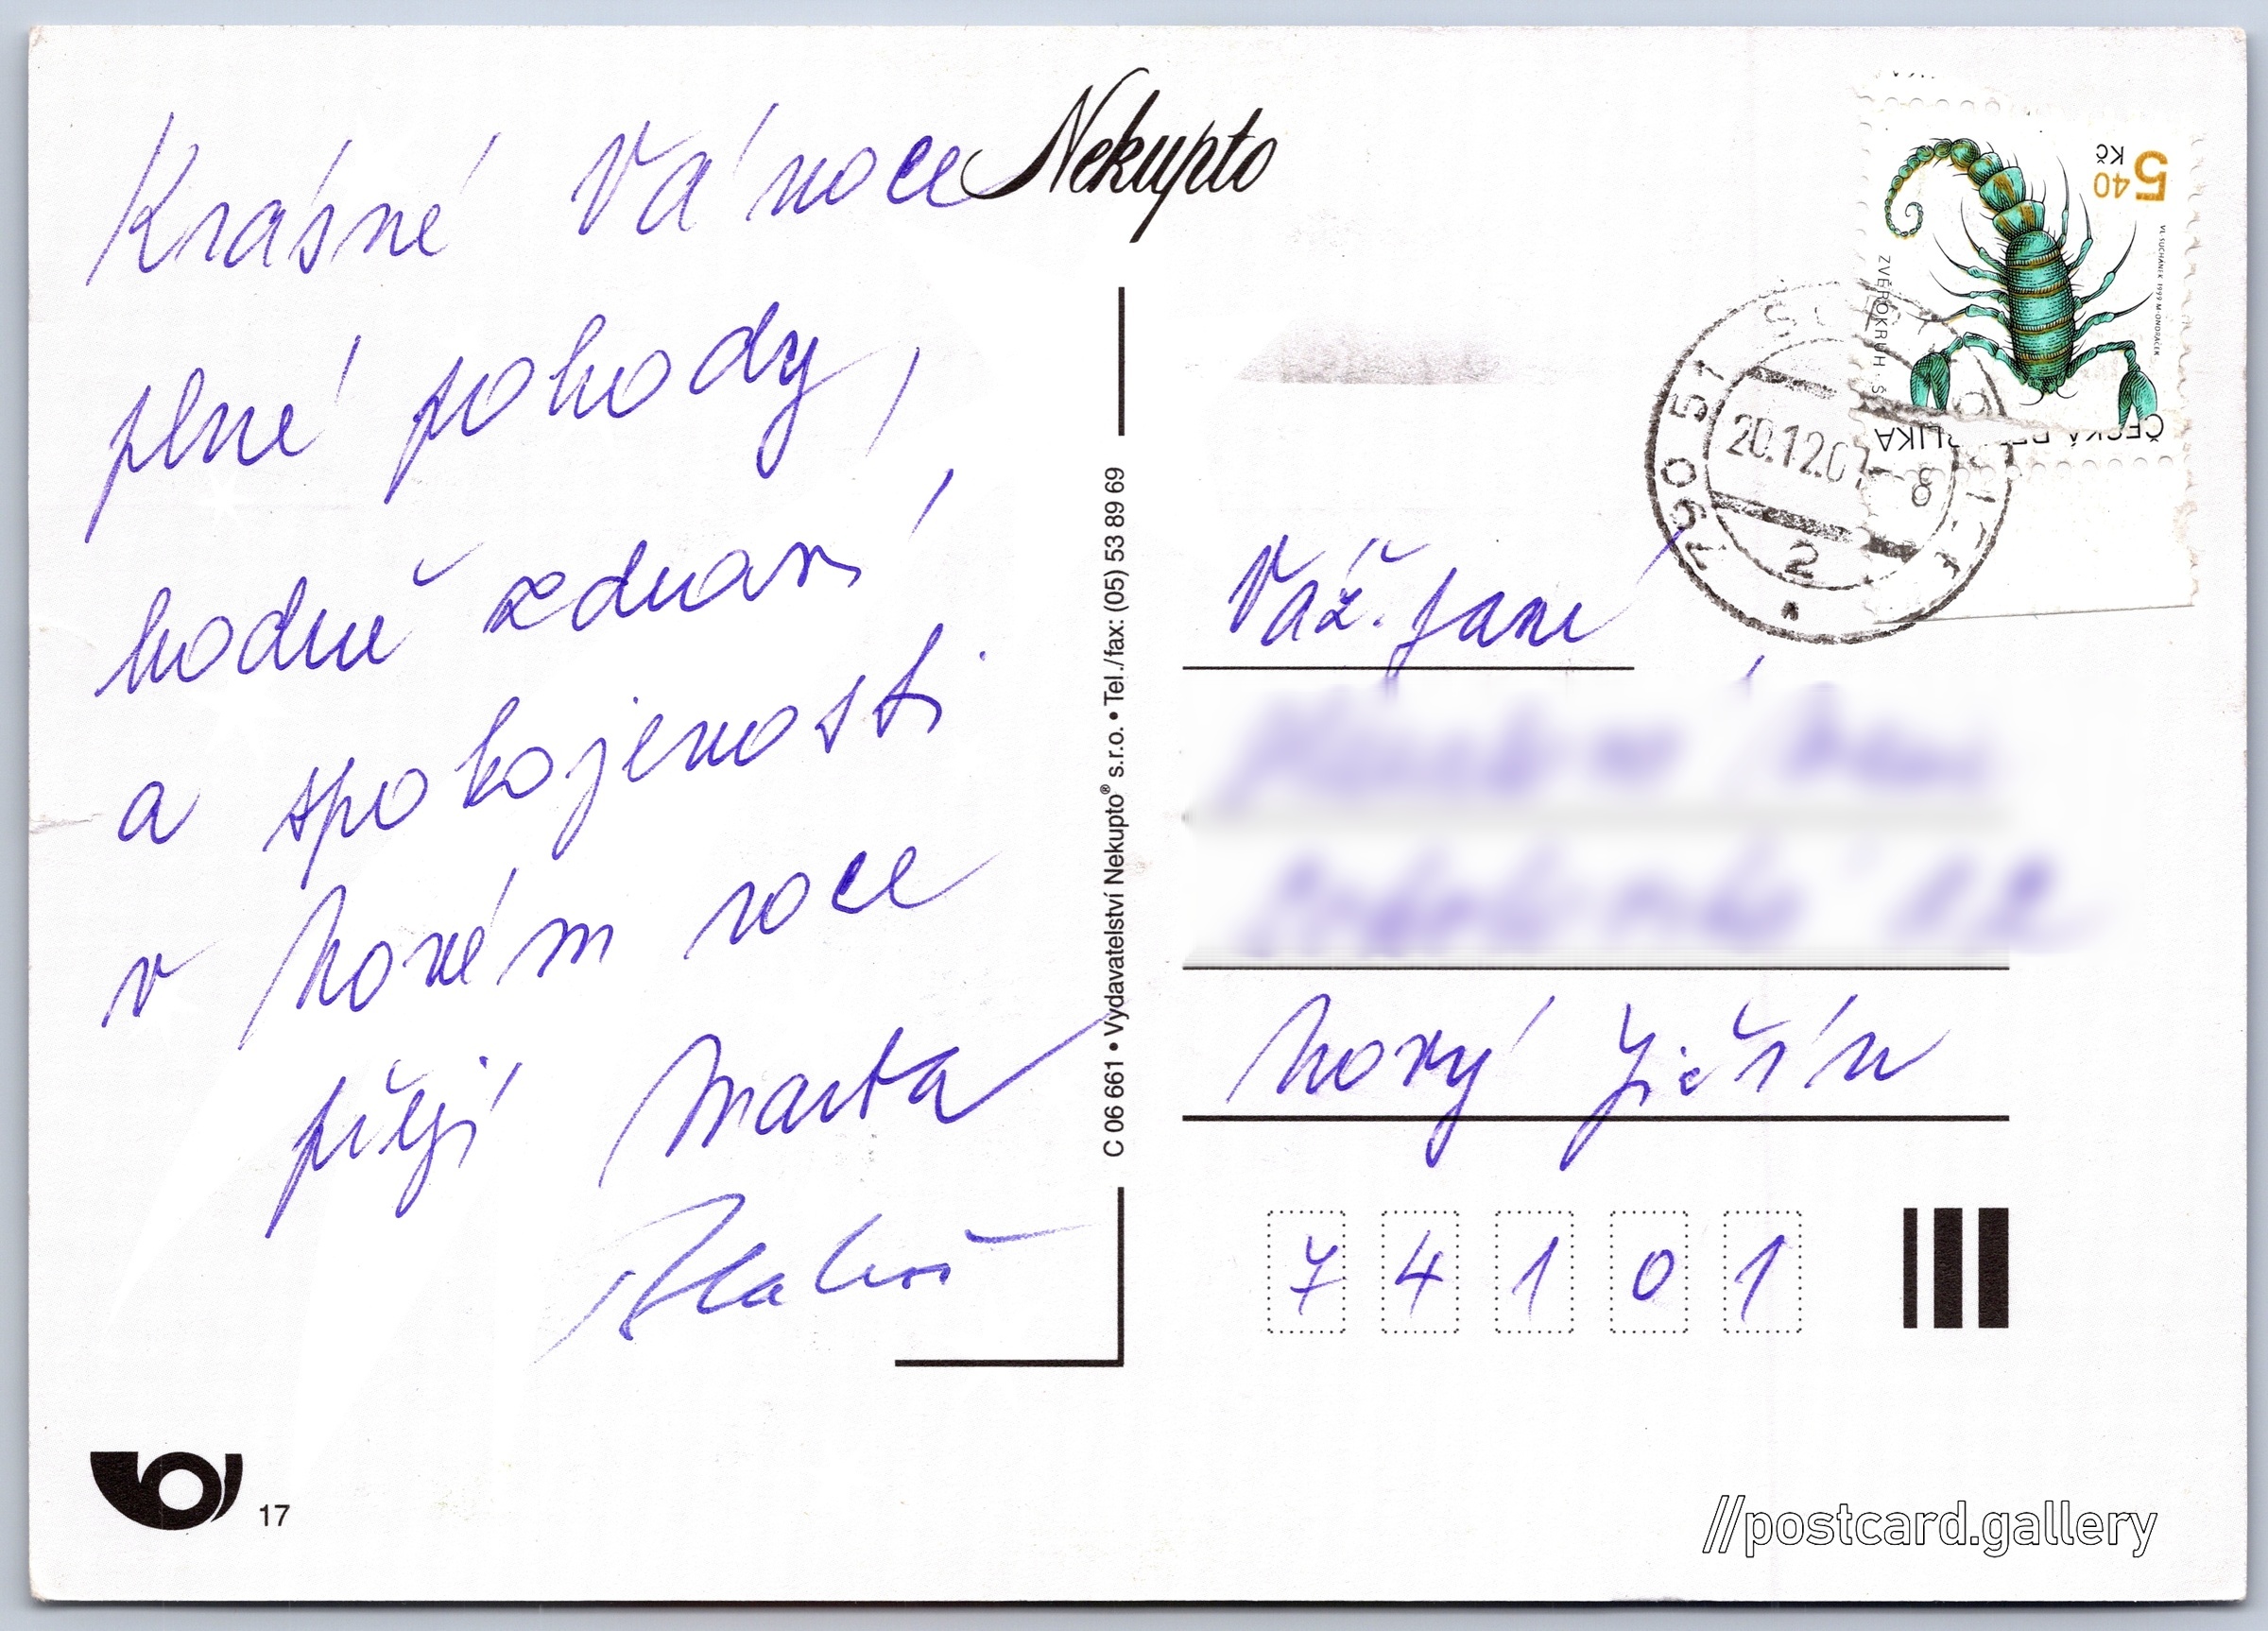 Krásné Vánoce
plné pohody,
hodně zdraví
a spokojenosti
v novém roce
přejí Marta
Nekupto
C 06 661 • Vydavatelství Nekupto® s.r.o. • Tel./fax: (05) 53 89 69
5 40
Kč
VL. SUCHÁNEK 1999 M. ONDRÁČEK
ZVĚROKRUH · Š
ČESKÁ REPUBLIKA
790 51
20.12.0
8
2
Váž. paní
Nový Jičín
7 4 1 0 1
17
//postcard.gallery